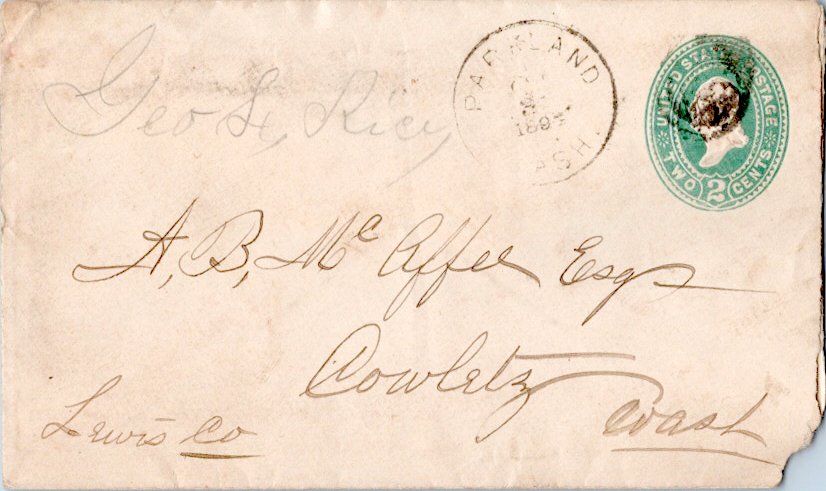 Geo L, Rice,
PARKLAND
189
WASH.
UNITED STATES POSTAGE
TWO 2 CENTS
A, B, Mc Affee Esq
Cowletz
Lewis Co
Wash